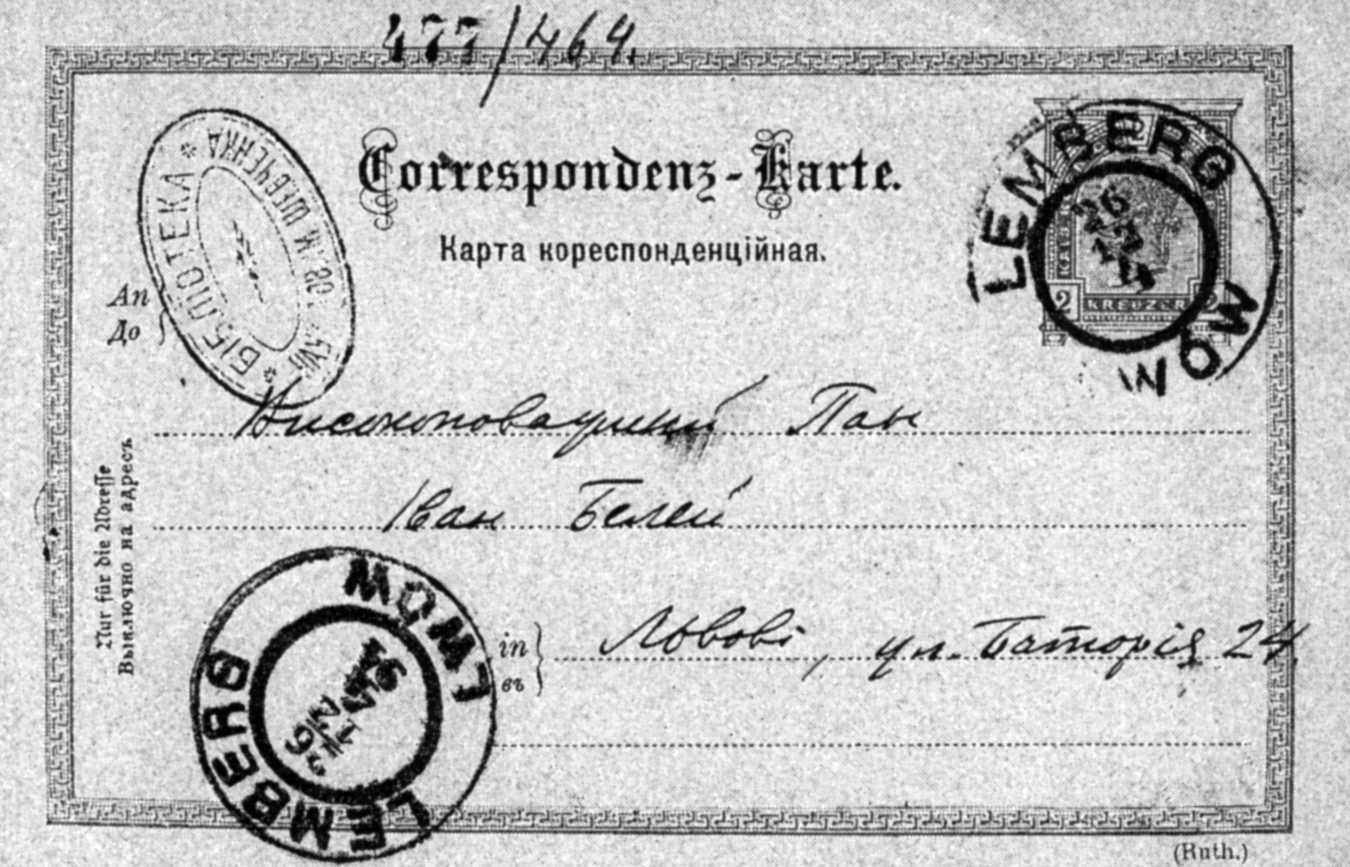 477/464.
Correspondenz-Karte.
Карта кореспонденційная.
БІБЛІОТЕКА * ІМ. ШЕВЧЕНКА *
LEMBERG LWÓW
26
12
2 KREUZER 2
An
До
Високоповажний Пан
Іван Белей
Nur für die Adresse
Выключно на адресъ
in
въ
Львові, ул. Баторія 24.
LEMBERG LWÓW
26
12
(Ruth.)